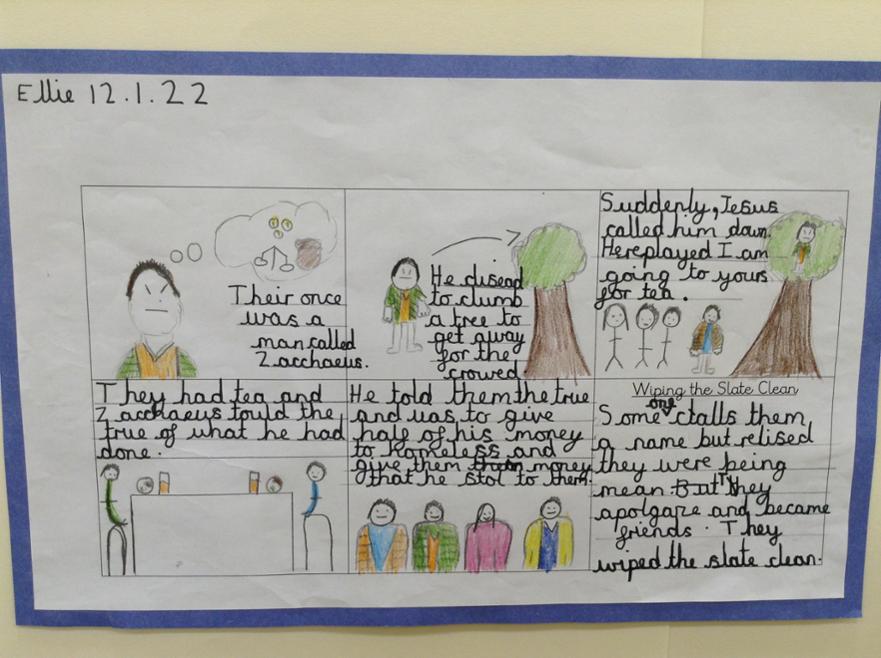 Ellie 12.1.22
Their once
was a
man called
Zacchaeus.
He disead
to clumb
a tree to
get away
for the
crowed
Suddenly, Jesus
called him down.
Hereplayed I am
going to yours
for tea.
They had tea and
Zacchaeus tould the
true of what he had
done.
He told them the true
and was to give
half of his money
to homeless and
give them money
that he stol to them.
Wiping the Slate Clean
Some one ctalls them
a name but relised
they were being
mean. But They
apolgaze and became
friends. They
wiped the slate clean.